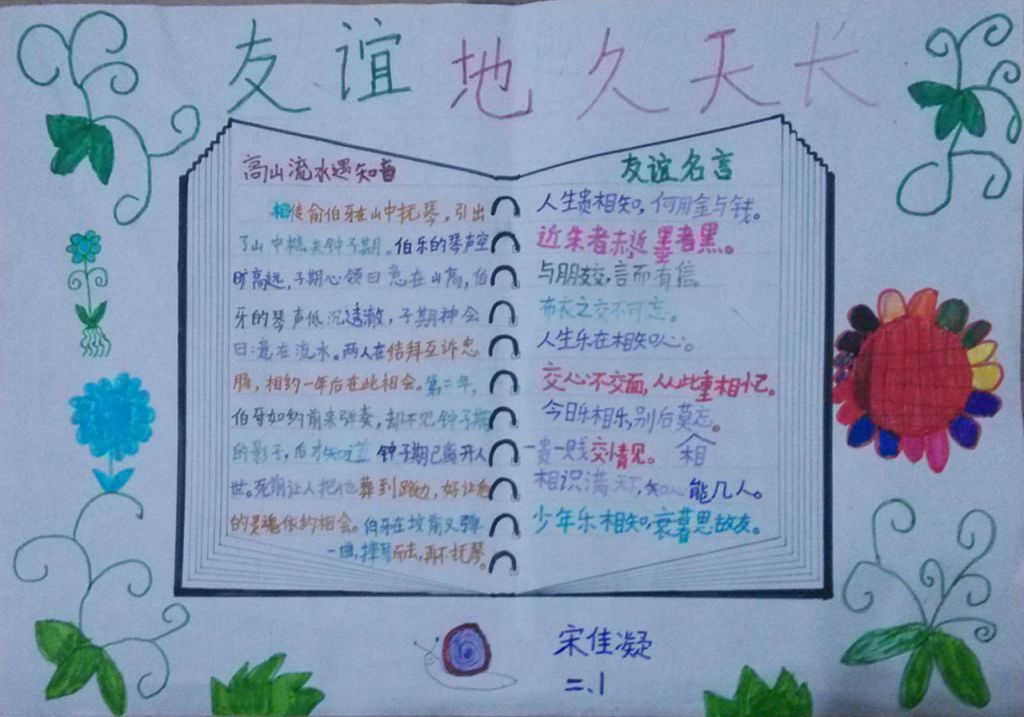 友谊地久天长
高山流水遇知音
相传俞伯牙在山中抚琴，引出
了山中樵夫钟子期。伯乐的琴声空
旷高远，子期心领曰意在山高，伯
牙的琴声低沉透澈，子期神会
曰：意在流水。两人在结拜互诉忠
肠，相约一年后在此相会。第二年，
伯牙如约前来弹奏，却不见钟子期
的影子，后才知道钟子期已离开人
世。死期让人把他葬到路边，好让他
的灵魂依约相会。伯牙在坟前又弹
一曲，摔琴而去，再不抚琴。
友谊名言
人生贵相知，何用金与钱。
近朱者赤，近墨者黑。
与朋友交，言而有信。
布衣之交不可忘。
人生乐在相知心。
交心不交面，从此重相忆。
今日乐相乐，别后莫忘。
一贵一贱交情见。相
相识满天下，知心能几人。
少年乐相知，衰暮思故友。
宋佳凝
二、1